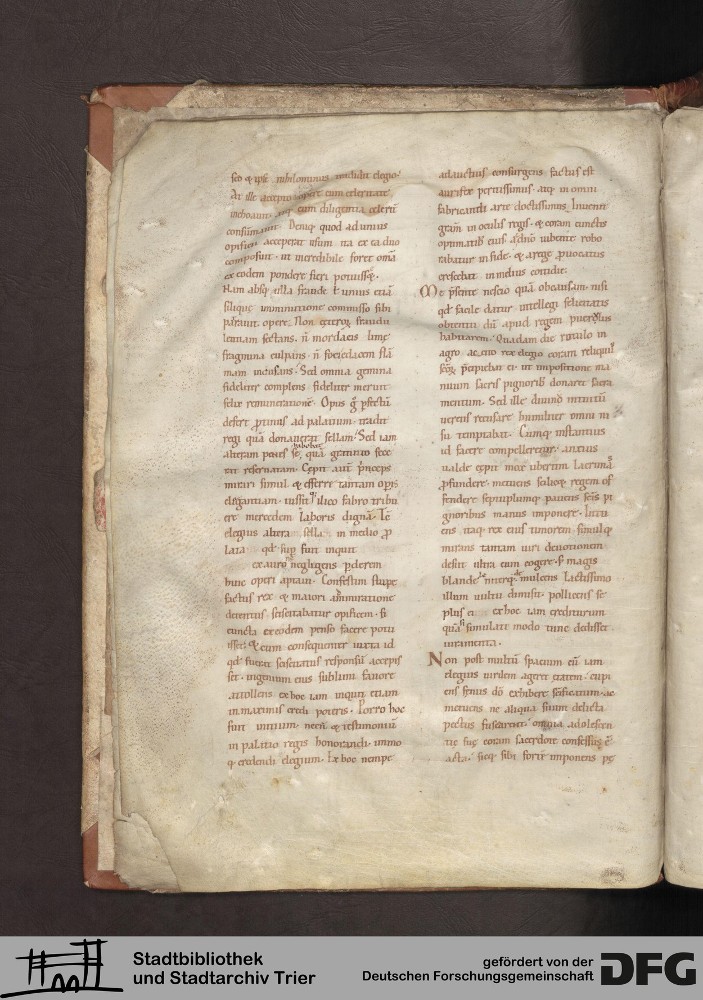 sed & ipse nihilominus tradidit elegio.
At ille accepto opere cum celeritate
inchoauit. atq; cum diligentia celerit
consumauit. Deniq; quod ad unius
opificii acceperat usum ita ex ea duo
composuit. ut incredibile foret omia
ex eodem pondere fieri potuisse.
Nam absq; ulla fraude t unius etia
siliquę imminutione commisso sibi
patrauit opere. Non ceteroꝝ fraudu
lentiam sectans. n mordacis limę
fragmina culpans. n foci edacem fla
mam incusans. Sed omnia gemina
fideliter complens fideliter meruit
felix remuneratione. Opus g pfectu
defert ptinus ad palatium. tradit
regi qua donauerat sellam. Sed iam
alteram penes se habebat, qua gratuito fece
rat reseruatam. Cepit aut princeps
mirari simul & efferre tantam opis
elegantiam. iussitq; ilico fabro tribu
ere mercedem laboris digna. Tc
elegius altera sella in medio p
lata qd sup fuit inquit
ex auro ne negligens pderem
huic operi aptaui. Confestim stupe
factus rex & maiori ammiratione
detentus. sciscitabatur opificem. si
cuncta ex eodem penso facere potu
isset. & cum consequenter iuxta id
qd fuerat sciscitatus responsu accepis
set. ingenium eius sublimi fauore
attollens ex hoc iam inquit etiam
in maximis credi poteris. Porro hoc
fuit initium. necn & testimoniu
in palatio regis honorandi. immo
q credendi elegium. Ex hoc nempe
adauctius consurgens factus est
aurifex peritissimus. atq; in omni
fabricandi arte doctissimus. Inuenit
gram in oculis regis. & coram cunctis
optimatib eius. Ad dno iubente robo
rabatur in fide. & a rege puocatus
crescebat in melius cotidie.
Me psente nescio qua ob causam. nisi
qd facile datur intellegi felicitatis
obtentu du apud regem pueroꝝ ius
habitarem. Quadam die rotulo in
agro. accito rex elegio coram reliquiis
scoꝝ. pcipiebat ei. ut impositione ma
nuum sacris pignorib donaret sacra
mentum. Sed ille diuino intuitu
uerens recusare humiliter omni ni
su temptabat. Cumq; instantius
id facere compelleretur. anxius
ualde cepit mox ubertim lacrima
pfundere. metuens scilicet regem of
fendere septuplumq; pauens scis pi
gnoribus manus imponere. Intu
ens itaq; rex eius timorem. simulq;
mirans tantam uiri deuotionem
desiit ultra eum cogere. s magis
blande leniterq; demulcens. laetissimo
illum uultu dimisit. pollicens se
plus ei ex hoc iam crediturum
qua si simulati modo tunc dedisset
iuramenta.
Non post multu spacium cu iam
elegius uirilem ageret etatem. cupi
ens senus do exhibere scificatum. ac
metuens ne aliqua suum delicta
pectus fuscarent. omnia adolescen
tie suę coram sacerdote confessus e
acta. sicq; sibi fortit imponens pę
Stadtbibliothek
und Stadtarchiv Trier
gefördert von der
Deutschen Forschungsgemeinschaft
DFG